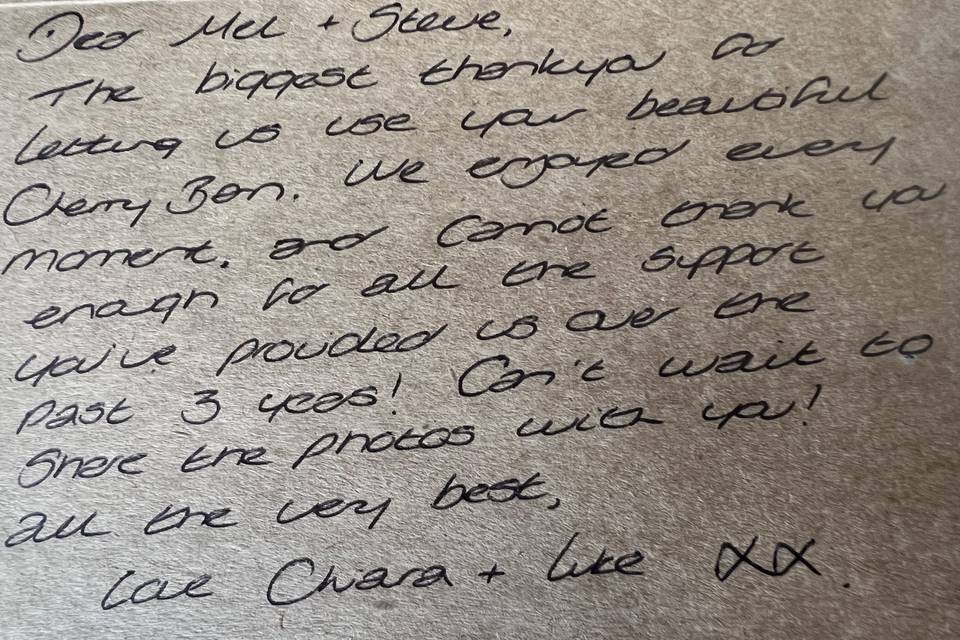 Dear Mel + Steve,
The biggest thankyou for
letting us use your beautiful
Cherry Barn. We enjoyed every
moment, and cannot thank you
enough for all the support
you've provided us over the
past 3 years! Can't wait to
share the photos with you!
all the very best,
love Chiara + Luke xx.